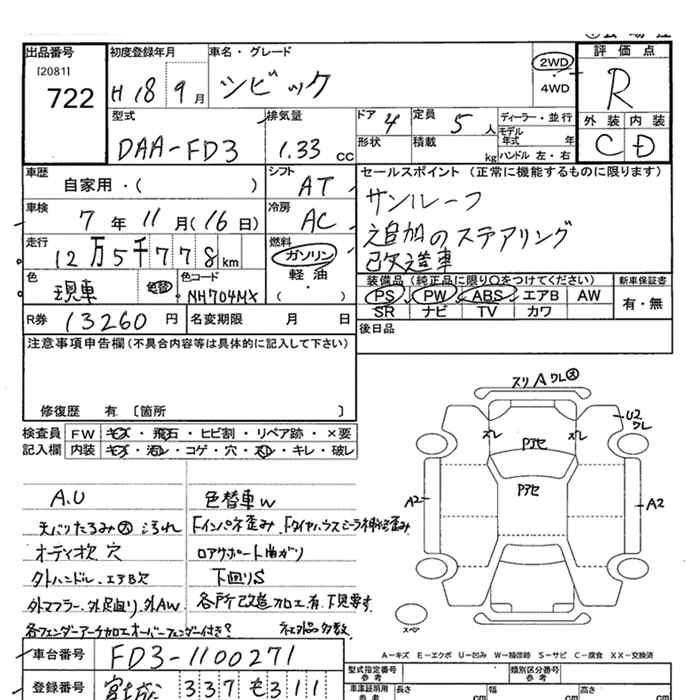 出品番号 初度登録年月 車名・グレード 評価点
[2081]
722 H18 9月 シビック 2WD 4WD R
型式 排気量 ドア 4 定員 5人 ディーラー・並行 外装 内装
DAA-FD3 1.33 cc 形状 積載 kg モデル年式 年 ハンドル 左・右 C D
車歴 シフト セールスポイント (正常に機能するものに限ります)
自家用・( ) AT サンルーフ
車検 冷房
7年11月(16日) AC 追加のステアリング
走行 燃料
12万5千778km ガソリン 改造車
色 色コード 軽油 装備品 (純正品に限り○をつけてください) 新車保証書
現車 色替 NH704MX ( ・ ) PS PW ABS エアB AW 有・無
SR ナビ TV カワ
R券 13260円 名変期限 月 日 後日品
注意事項申告欄(不具合内容等は具体的に記入して下さい)
修復歴 有 〔箇所 〕
スリ A ワレ大
U2 ワレ
ズレ ズレ
Pアセ
Pアセ
A2 A2
スペア
検査員 FW キズ・飛石・ヒビ割・リペア跡・×要
記入欄 内装 キズ・汚れ・コゲ・穴・スレ・キレ・破レ
A.U 色替車W
天バリたるみ大 よごれ Fインパネ歪み、Fタイヤハウスシーラ補修歪み
オーディオ欠 穴 ロアサポート曲がり
外ハンドル、エアB欠 下回りS
外マフラー、外足回り、外AW 各所改造加工有 下見要す
各フェンダーアーチ加工オーバーフェンダー付き? 社外品多数
A-キズ E-エクボ U-凹み W-補修跡 S-サビ C-腐食 XX-交換済
車台番号 FD3-1100271
型式指定番号 類別区分番号
登録番号 宮城 337 も 311
車庫証明用参考 長さ cm 幅 cm 高さ cm